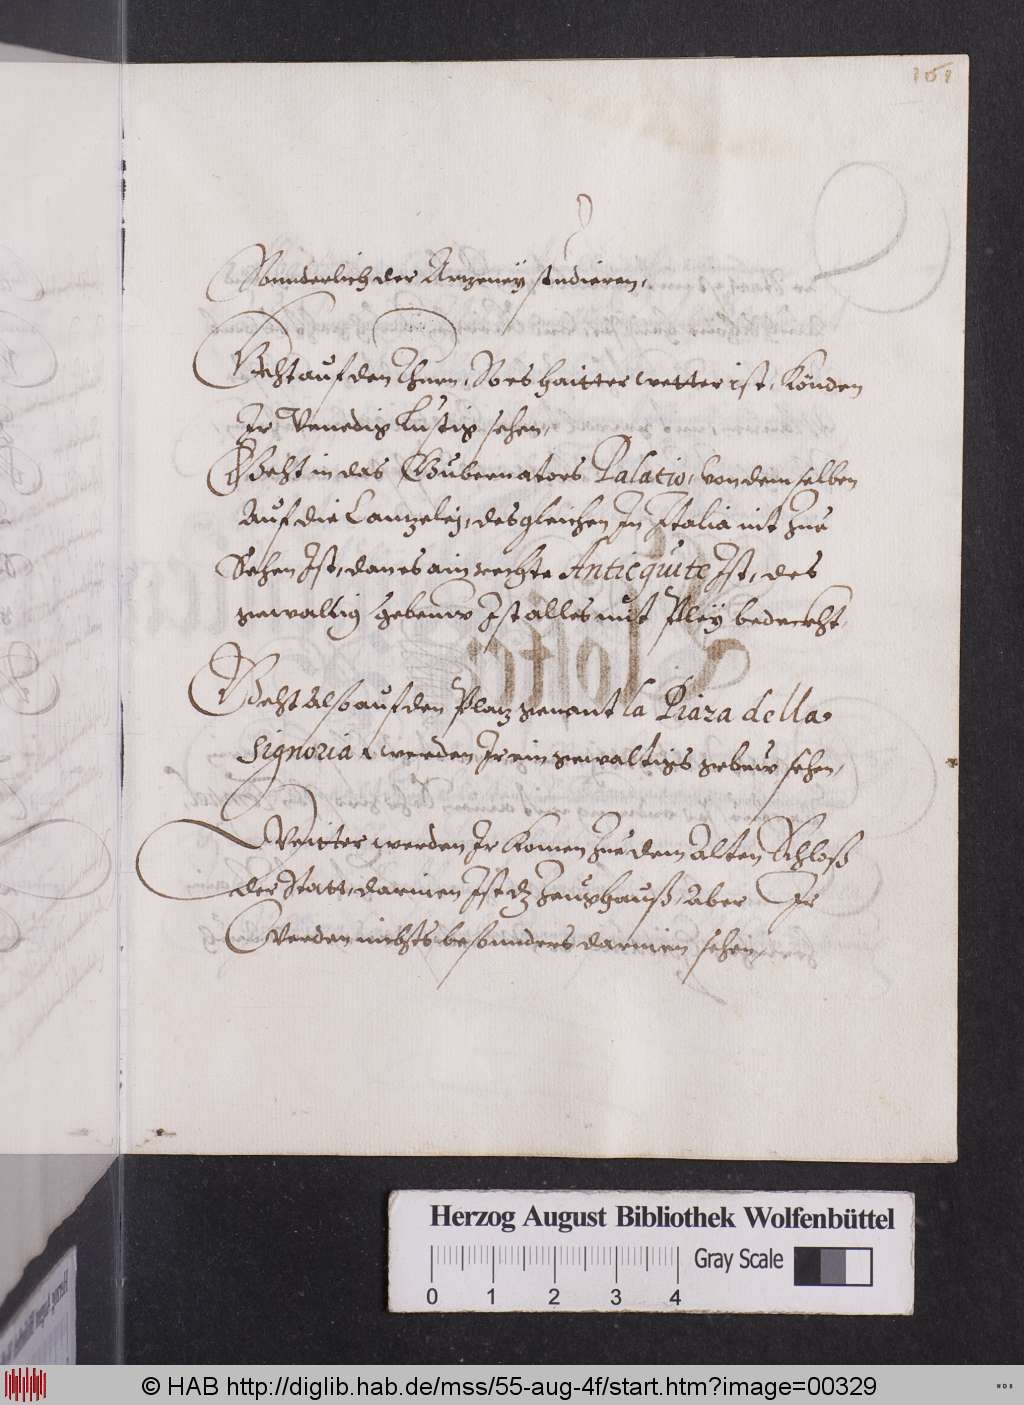 Sonnderlich der Artzeney studieren,
Geht auf den Thurn, So es haitter wetter ist, Könden
Ir Venedig Lustig sehen,
Geht in das Gubernators Palatio, von dem selben
Auf die Canzeley, desgleichen In Italia nit zue
Sehen Ist, dan es ain rechte Anticquite Ist, des
gewaltig gebeuw Ist alles mit Pley bedeckht,
Geht Alß auf den Platz genant la Piaza della
Signoria werden Ir ein gewaltigs gebew sehen,
Weitter werden Ir komen zue dem Alten Schloß
der Statt, darinen Ist dz Zeughauß, Aber Ir
Werden nichts besonnders darinen sehen,
Herzog August Bibliothek Wolfenbüttel
Gray Scale
0 1 2 3 4
© HAB http://diglib.hab.de/mss/55-aug-4f/start.htm?image=00329